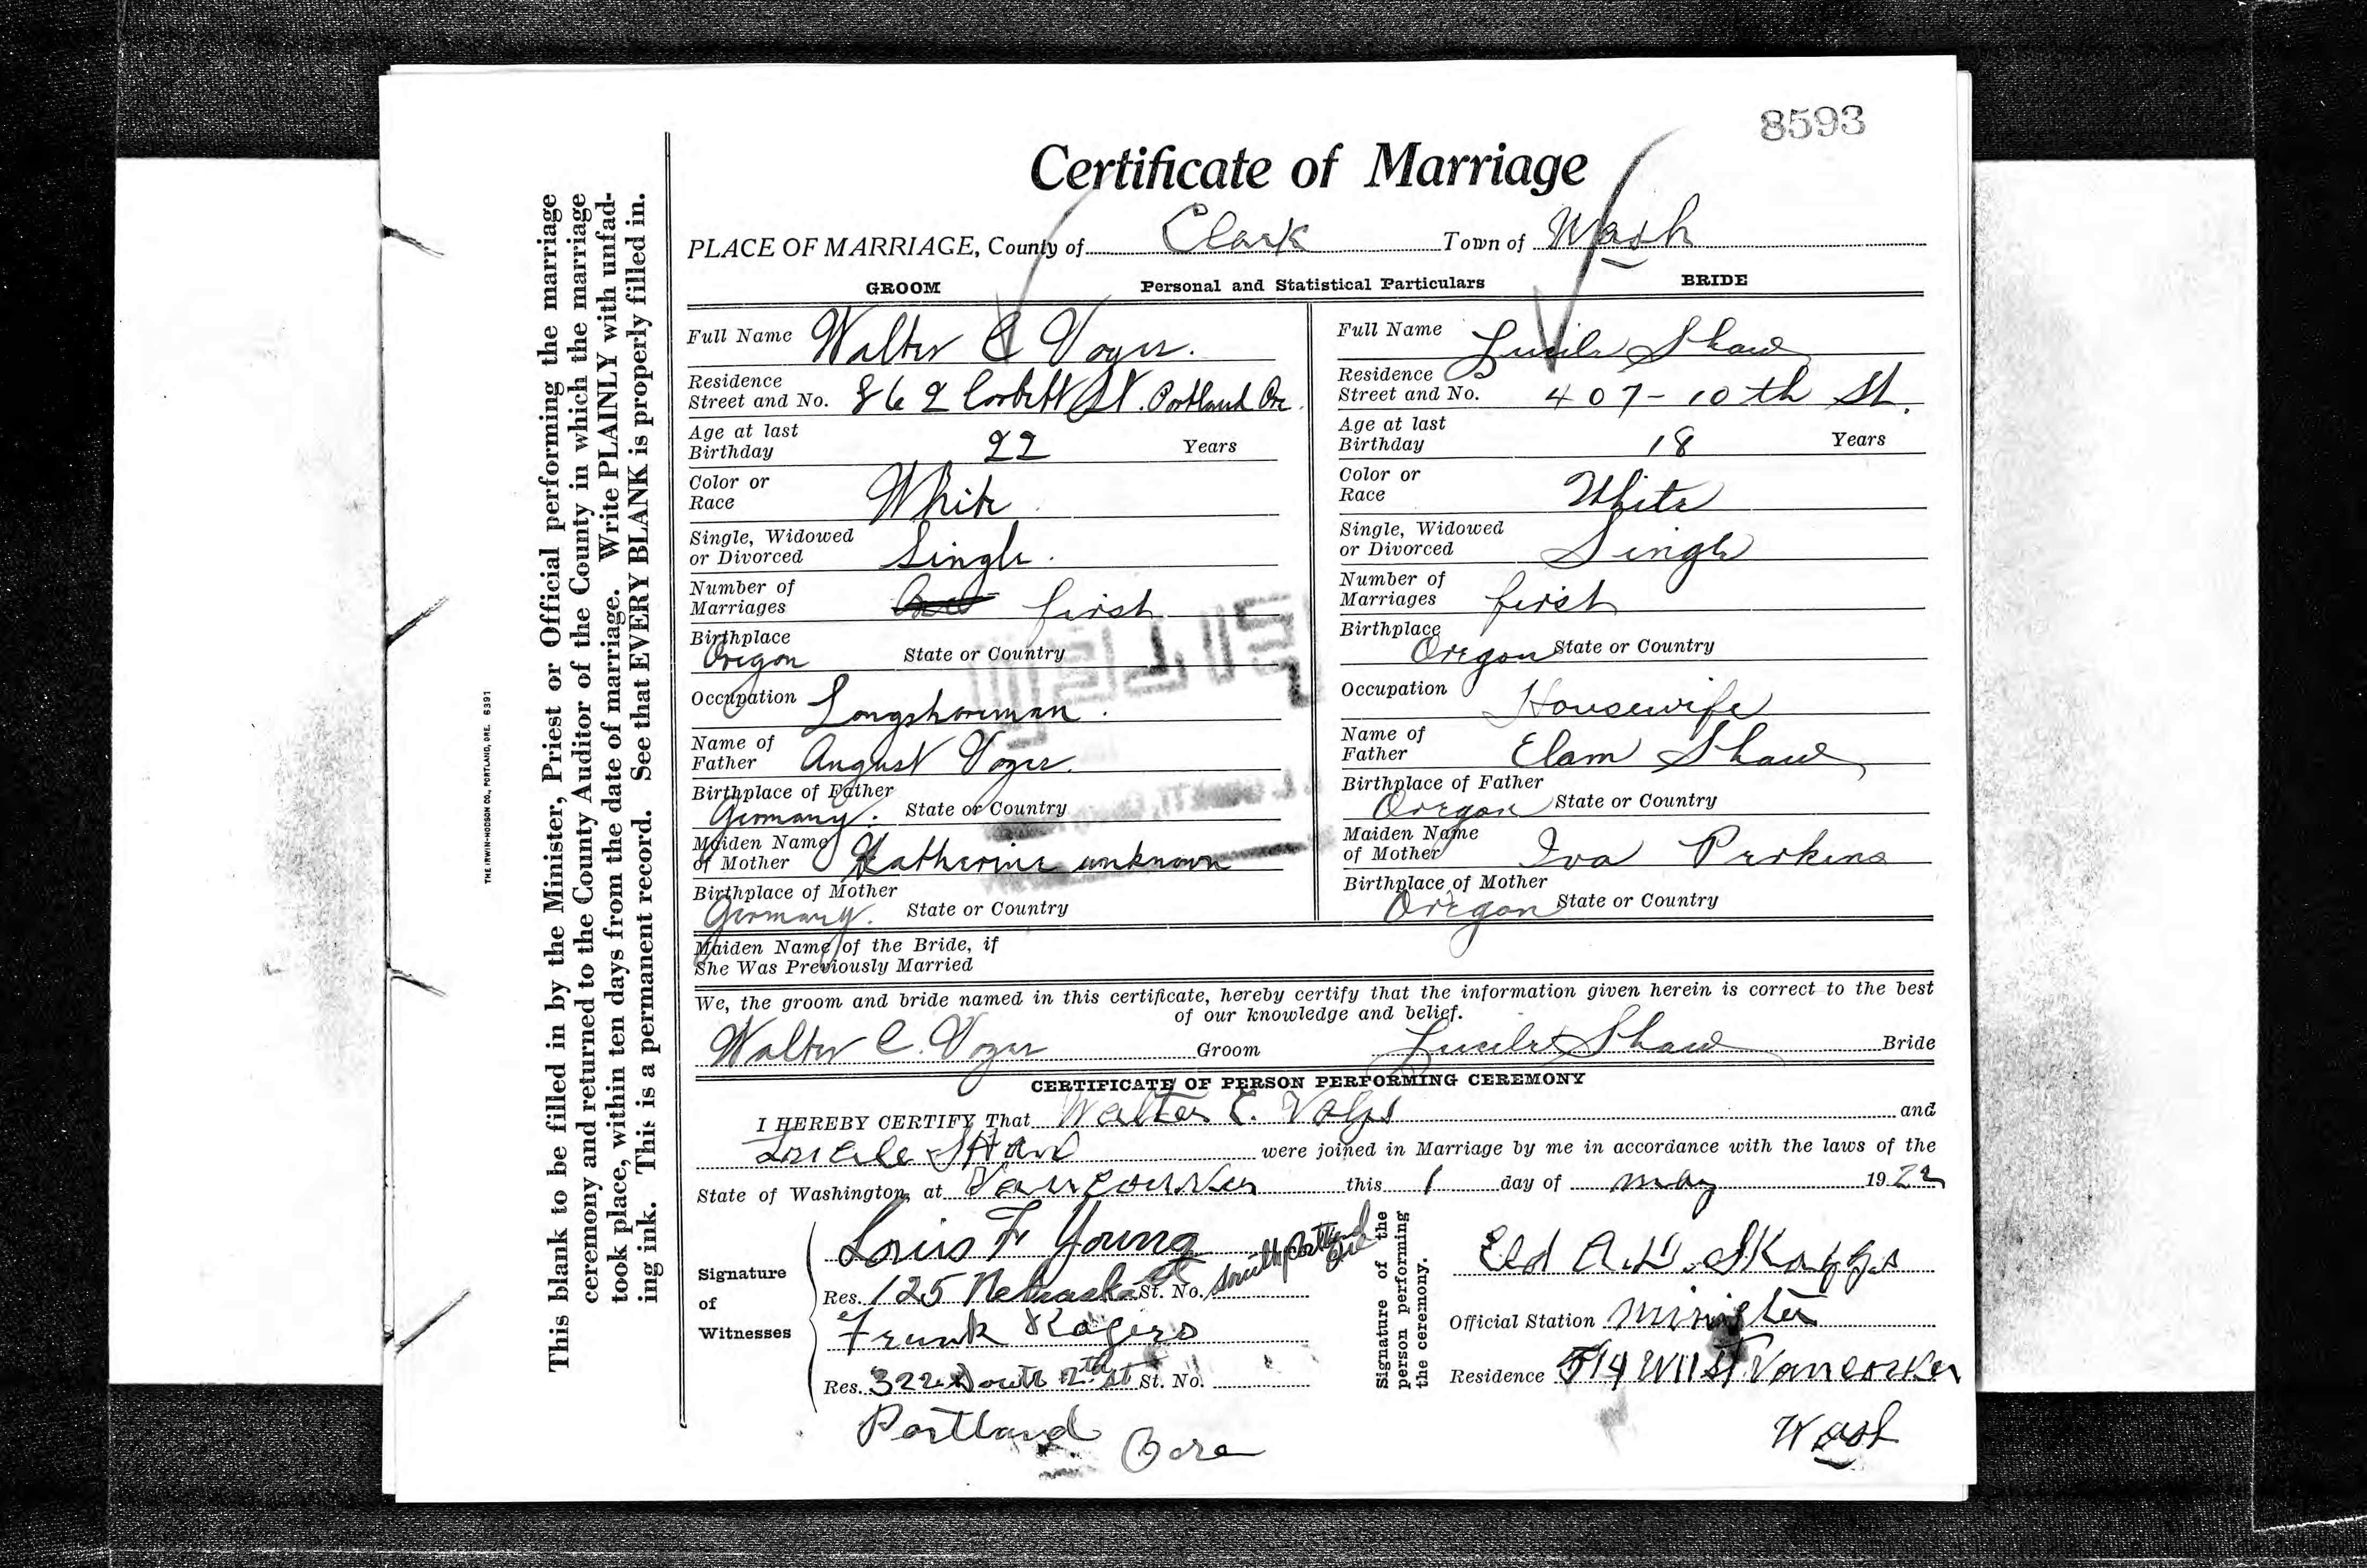 8593
Certificate of Marriage
PLACE OF MARRIAGE, County of Clark Town of Wash
GROOM Personal and Statistical Particulars BRIDE
Full Name Walter C Voger.
Residence
Street and No. 862 Corbett St. Portland Ore.
Age at last
Birthday 22 Years
Color or
Race White
Single, Widowed
or Divorced Single.
Number of
Marriages first
Birthplace
Oregon State or Country
Occupation Longshoreman.
Name of
Father August Voger.
Birthplace of Father
Germany. State or Country
Maiden Name
of Mother Katherine unknown
Birthplace of Mother
Germany. State or Country
Full Name Lucile Shaw
Residence
Street and No. 407-10th St.
Age at last
Birthday 18 Years
Color or
Race White
Single, Widowed
or Divorced Single
Number of
Marriages first
Birthplace
Oregon State or Country
Occupation Housewife
Name of
Father Elam Shaw
Birthplace of Father
Oregon State or Country
Maiden Name
of Mother Iva Perkins
Birthplace of Mother
Oregon State or Country
Maiden Name of the Bride, if
She Was Previously Married
We, the groom and bride named in this certificate, hereby certify that the information given herein is correct to the best
of our knowledge and belief.
Walter C. Voger Groom Lucile Shaw Bride
CERTIFICATE OF PERSON PERFORMING CEREMONY
I HEREBY CERTIFY That Walter C. and
Shaw were joined in Marriage by me in accordance with the laws of the
State of Washington, at Vancouver this 1 day of may 1922
Signature
of
Witnesses
Louis F Young
Res. 125 Nebraska st St. No. South Portland Ore
Frank Rogers
Res. 322 South 2nd St. No.
Portland Ore
Signature of the
person performing
the ceremony.
Eld A.D. Skaggs
Official Station Minister
Residence 514 W 11 St Vancouver
Wash
This blank to be filled in by the Minister, Priest or Official performing the marriage
ceremony and returned to the County Auditor of the County in which the marriage
took place, within ten days from the date of marriage. Write PLAINLY with unfad-
ing ink. This is a permanent record. See that EVERY BLANK is properly filled in.
THE IRWIN-HODSON CO., PORTLAND, ORE. 6391